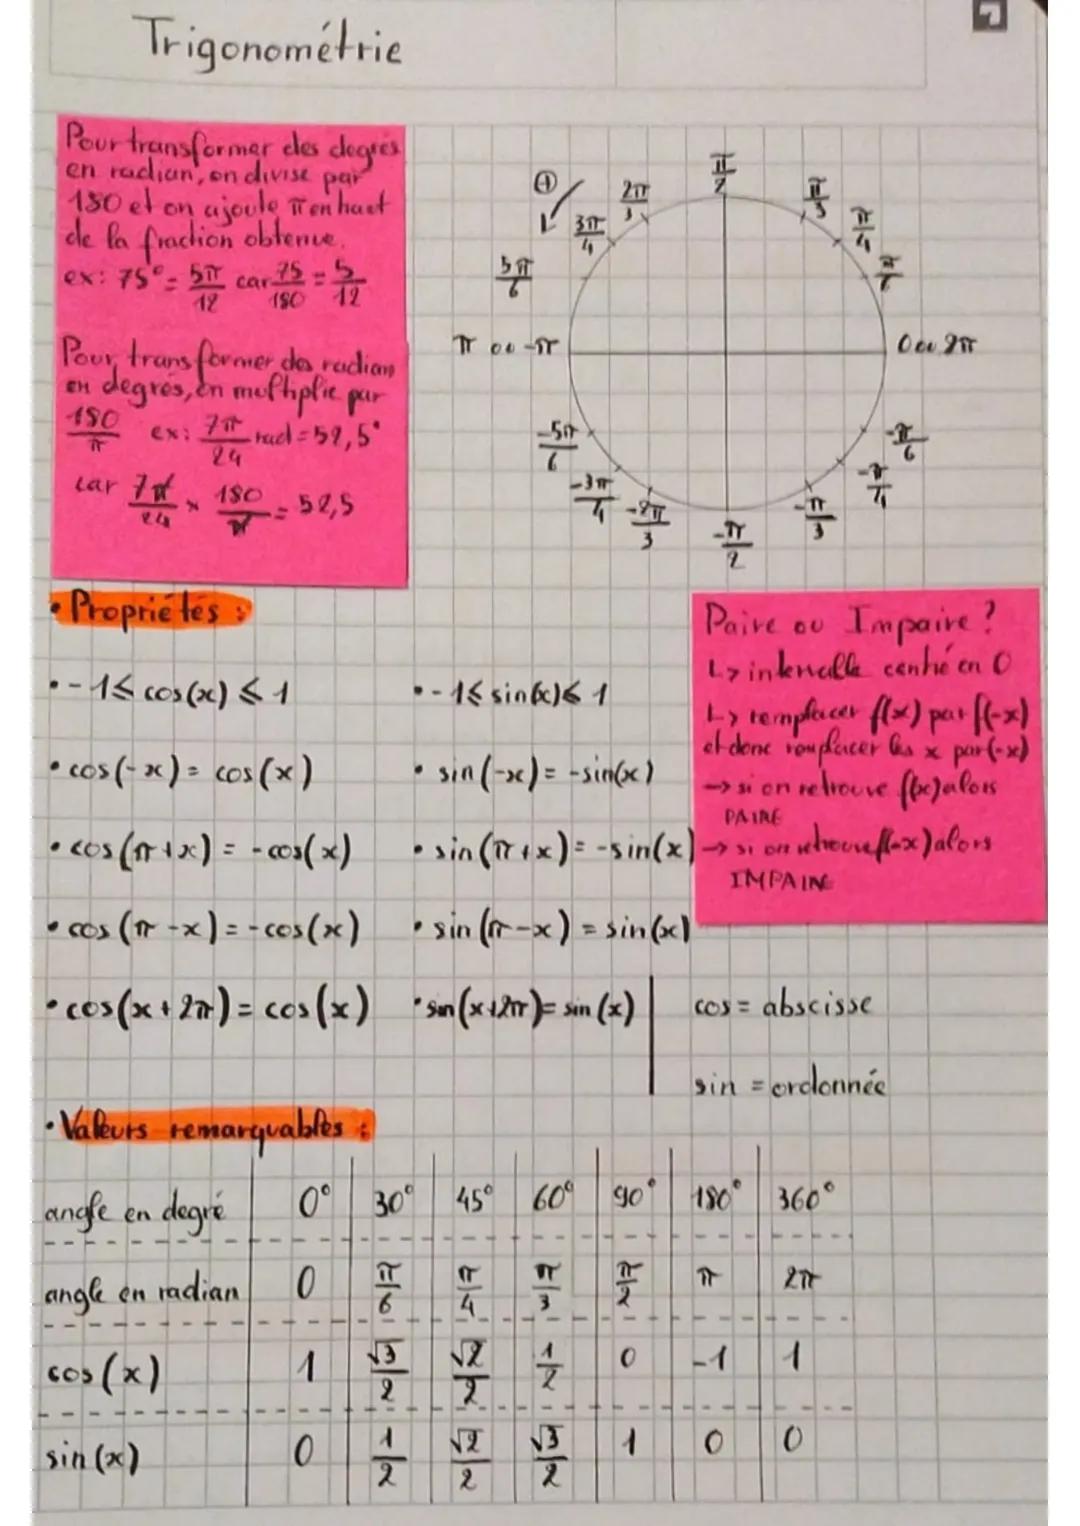 Trigonométrie
Pour transformer des degrés
en radian, on divise par
180 et on ajoute π en haut
de la fraction obtenue.
ex: 75° = 5π/12 car 75/180 = 5/12
Pour transformer des radian
en degrés, on multiplie par
180/π ex: 7π/24 rad = 52,5°
car 7π/24 × 180/π = 52,5
π/2
+
2π/3
π/3
3π/4
π/4
5π/6
π/6
π ou -π
0 ou 2π
-5π/6
-π/6
-3π/4
-π/4
-2π/3
-π/3
-π/2
• Propriétés :
• -1 ≤ cos(x) ≤ 1
• -1 ≤ sin(x) ≤ 1
• cos(-x) = cos(x)
• sin(-x) = -sin(x)
• cos(π+x) = -cos(x)
• sin(π+x) = -sin(x)
• cos(π-x) = -cos(x)
• sin(π-x) = sin(x)
• cos(x+2π) = cos(x)
• sin(x+2π) = sin(x)
Paire ou Impaire ?
↳ intervalle centré en 0
↳ remplacer f(x) par f(-x)
et donc remplacer les x par (-x)
→ si on retrouve f(x) alors
PAIRE
→ si on retrouve f(-x) alors
IMPAIRE
cos = abscisse
sin = ordonnée
• Valeurs remarquables :
angle en degré 0° 30° 45° 60° 90° 180° 360°
angle en radian 0 π/6 π/4 π/3 π/2 π 2π
cos(x) 1 √3/2 √2/2 1/2 0 -1 1
sin(x) 0 1/2 √2/2 √3/2 1 0 0